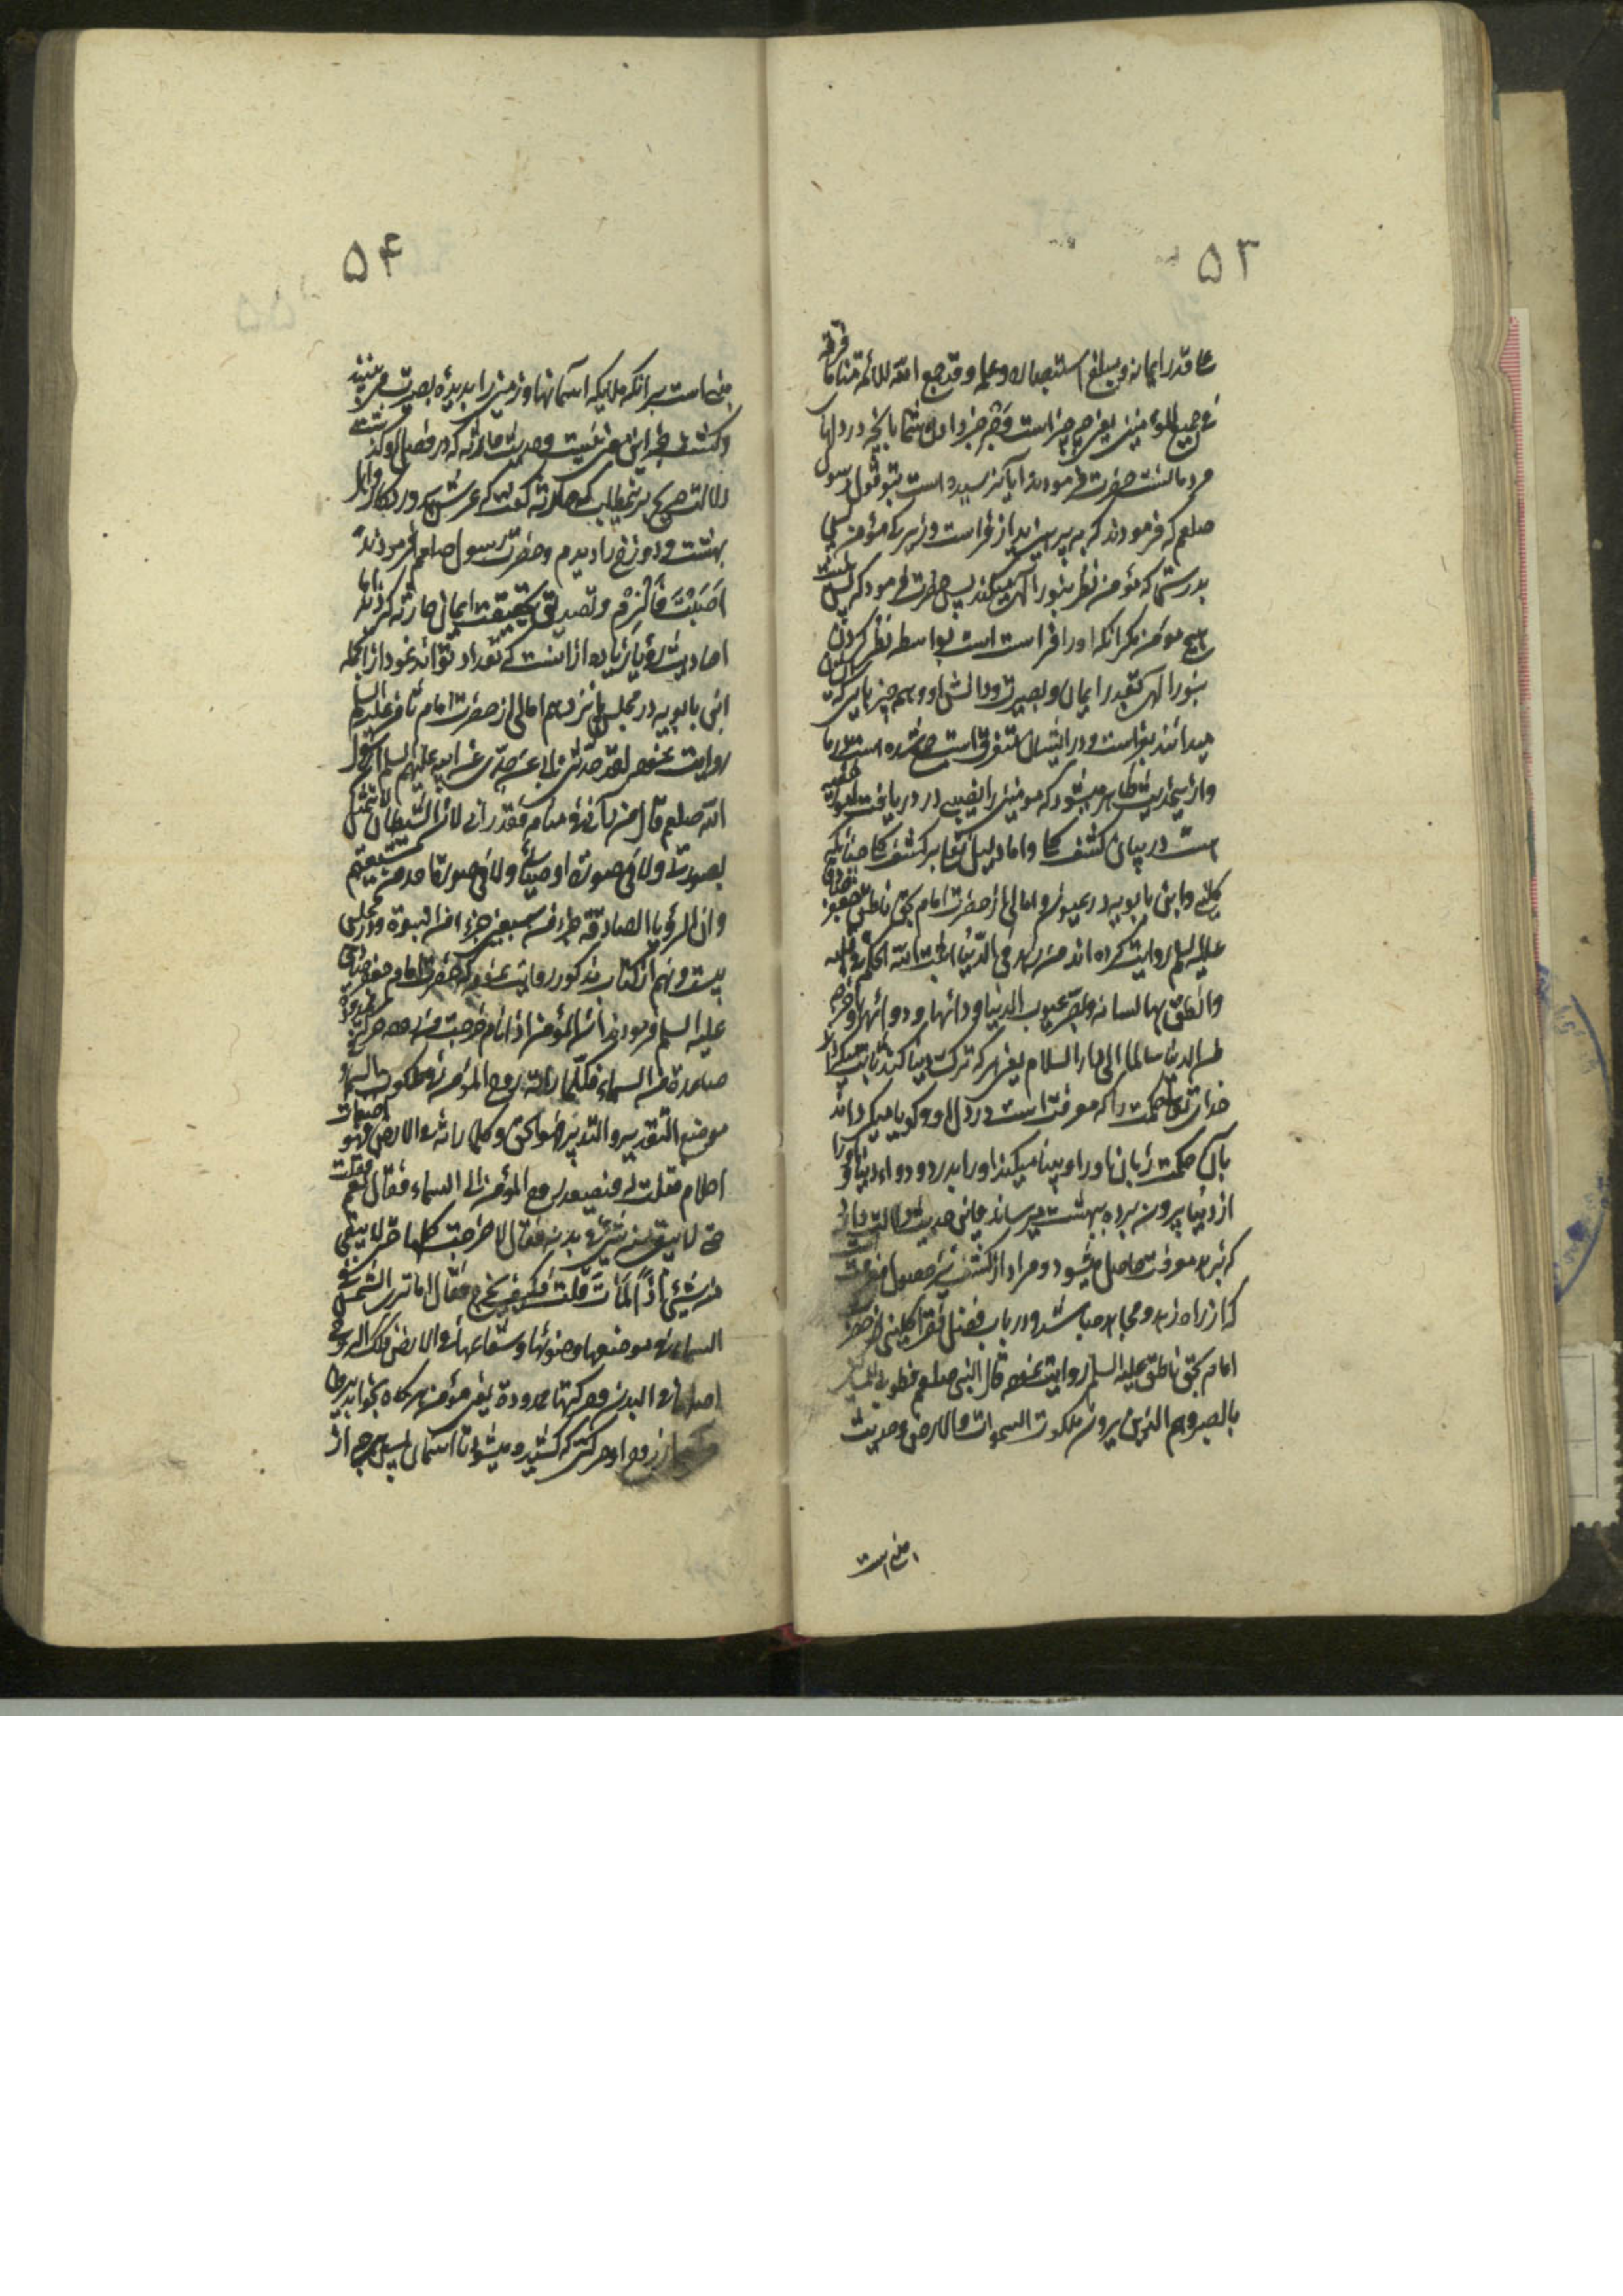 ۵۳
علی قدر ایمانه و مبلغ استبصاره و علمه و قد جمع الله للائمة منا ما فرقه
فی جمیع المؤمنین یعنی چه چیز است وجه خبر دادن شما بآنچه در دلهای
مردمانست حضرت فرمودند آیا نرسیده است بتو قول رسول
صلعم که فرمودند که بپرهیزید از فراست و زیرکی مؤمن
بدرستی که مؤمن نظر بنور الهی میکند پس حضرت فرمود که نیست
هیچ مؤمن مگر آنکه او را فراست است بواسطه نظر کردن
بنور الهی بقدر ایمان و بصیرت و دانش او و همه چیز
میدانند بفراست و در ایشان متفرق است جمع شده است در ما
و ازین حدیث ظاهر میشود که مؤمنین را نصیبی در دریافت
است در بیان کشف و اما دلیل نقلی بر کشف چنانکه
کلینی و ابن بابویه در عیون و امالی از حضرت امام بحق ناطق جعفر صادق
علیه السلم روایت کرده اند من زهد فی الدنیا اثبت الله الحکمة فی قلبه
و انطق بها لسانه و بصره عیوب الدنیا و دائها و دوائها و اخرجه
من الدنیا سالما الی دار السلام یعنی هر که ترک دنیا کند ثابت میگرداند
خدای تعالی حکمت را که معرفت است در دل او و گویا میگرداند
بآن حکمت زبان او را و بینا میکند او را بدرد و دواء دنیا و او را
از دنیا بیرون برده ببهشت میرساند
که بزهد معرفت حاصل میشود و مراد از کشف نیز حصول معرفت
که از راه زهد و مجاهده باشد و در باب فضل فقرا کلینی از حضرت
امام بحق ناطق علیه السلم روایت نموده قال النبی صلعم فطوبی للمساکین
بالصبر و هم الذین یرون ملکوت السموات و الارض و حدیث
این است
۵۴
این است بر آنکه ملایکه آسمانها و زمین را بدیده بصیرت می بینند
و کشف جز این معنی نیست و حدیث حارثه که در فصل اول گذشت
دلالت صریح برین مطلب که حارثه گفت که عرش پروردگار و اهل
بهشت و دوزخ را دیدم و حضرت رسول صلعم فرمودند
اصبت فالزم و تصدیق بحقیقت ایمان حارثه کردند اما
احادیث رؤیا زیاده از آنست که تعداد توان نمود از آنجمله
ابن بابویه در مجلس پانزدهم امالی از حضرت امام ثامن علیه السلم
روایت نموده لقد حدثنی ابی عن جدی عن ابیه علیهم السلم ان رسول
الله صلعم قال من رآنی فی منامه فقد رآنی لان الشیطان لا یتمثل
بصورتی و لا فی صورة اوصیائی و لا فی صورة احد من شیعتهم
و ان الرؤیا الصادقة جزء من سبعین جزء من النبوة و در مجلس
بیست و نهم از کتاب مذکور روایت نموده که حضرت امام جعفر صادق
علیه السلم فرمودند ان المؤمن اذا نام خرجت من روحه حرکة ممدودة
صاعدة من السماء فکلما رآه روح المؤمن فی ملکوت السماء
موضع التقدیر و التدبیر فهو الحق و کلما رآه فی الارض فهو اضغاث
احلام فقلت له فیصعد روح المؤمن الی السماء فقال نعم فقلت
حتی لا یبقی منه شیء فی بدنه فقال لا لو خرجت کلها حتی لا یبقی
منه شیء اذا لمات قلت فکیف یخرج فقال اما تری الشمس فی
السماء فی موضعها و ضوئها و شعاعها فی الارض فکذلک الروح
اصلها فی البدن و حرکتها ممدودة یعنی مؤمن هرگاه بخواب رود
از روح او حرکتی که کشیده میشود تا آسمان پس هرچه از